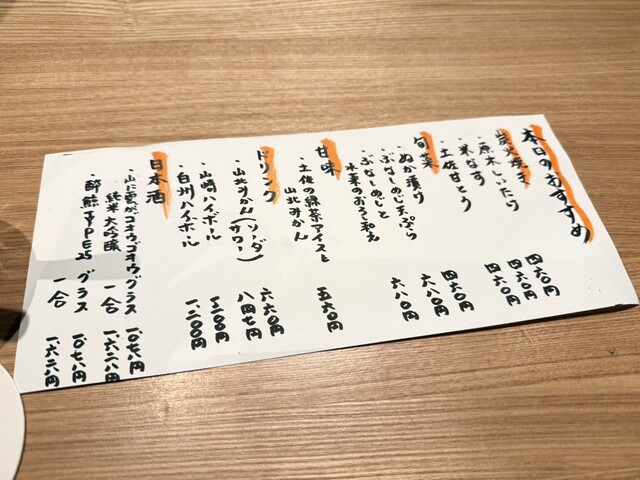 本日のおすすめ
炭火焼き
・原木しいたけ 四六〇円
・米なす 四六〇円
・土佐甘とう 四六〇円
旬菜
・ぬか漬け 四六〇円
・ぶなしめじ天ぷら 六八〇円
・ぶなしめじと
水菜のおろし和え 六八〇円
甘味
・土佐の緑茶アイスと
山北みかん 五六〇円
ドリンク
・山北みかん(ソーダ) 六六〇円
(サワー) 八四七円
・山崎ハイボール
・白州ハイボール 一、二〇〇円
日本酒
・山に雲がゴオウゴオウ グラス 一、〇七八円
純米大吟醸 一合 一、六二八円
・酔鯨TYPE25 グラス 一、〇七八円
一合 一、六二八円